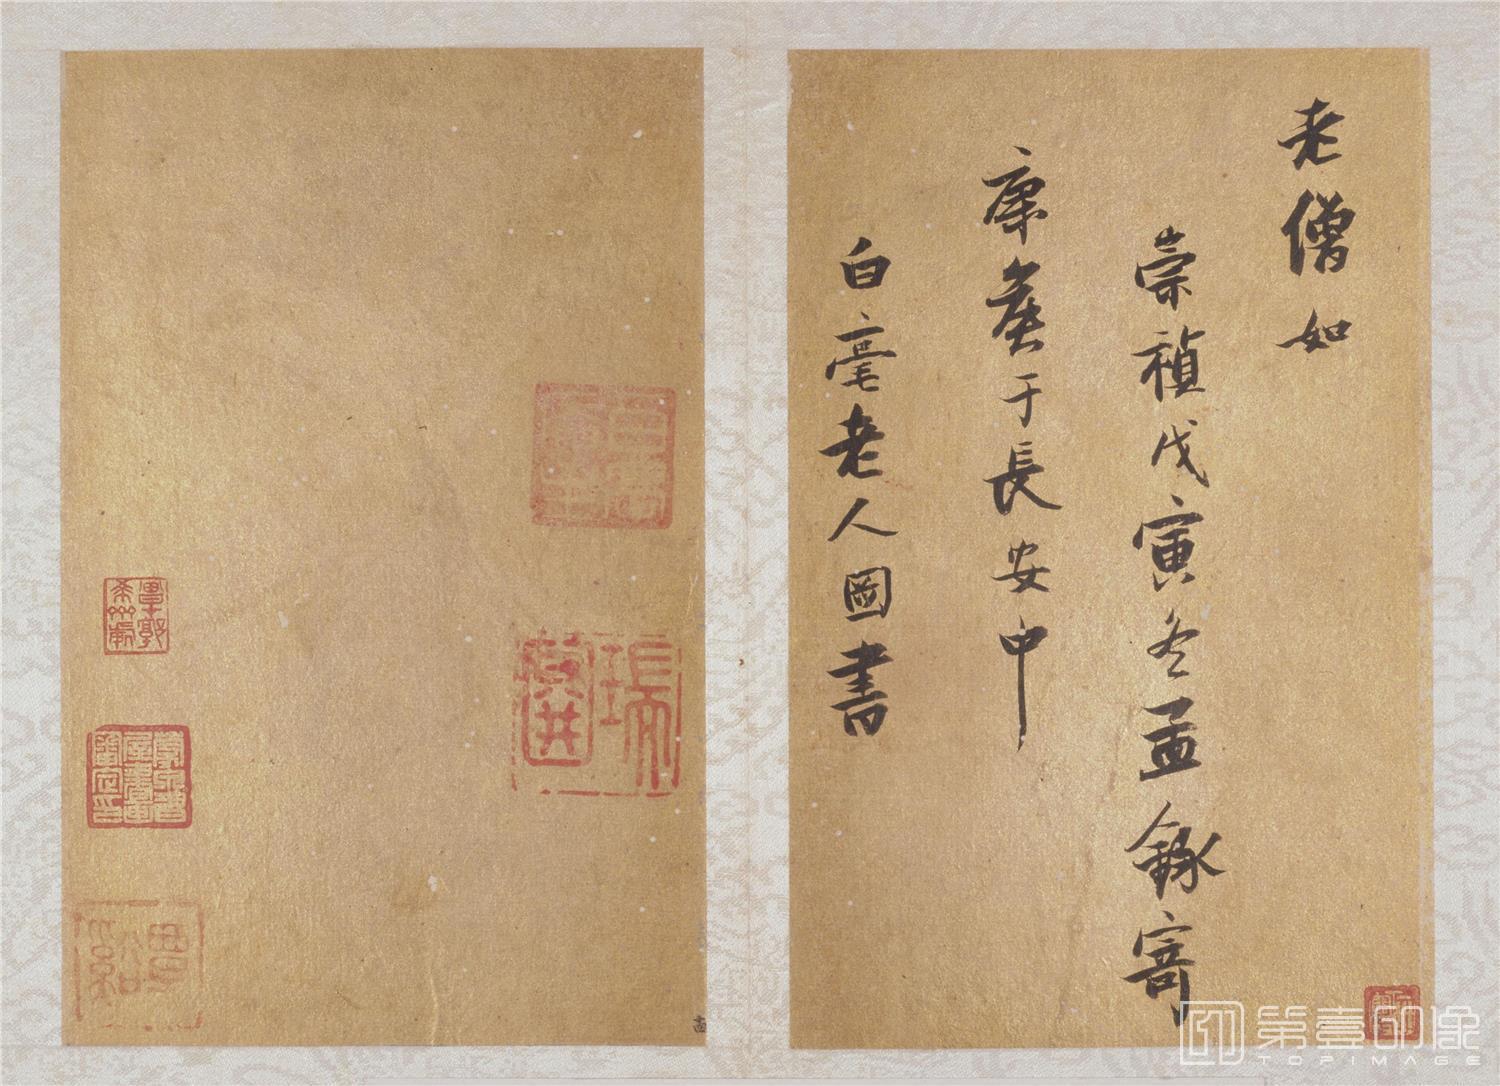 老僧如
崇禎戊寅冬孟錄寄
康矦于長安中
白毫老人圖書
第壹印像
TOPIMAGE